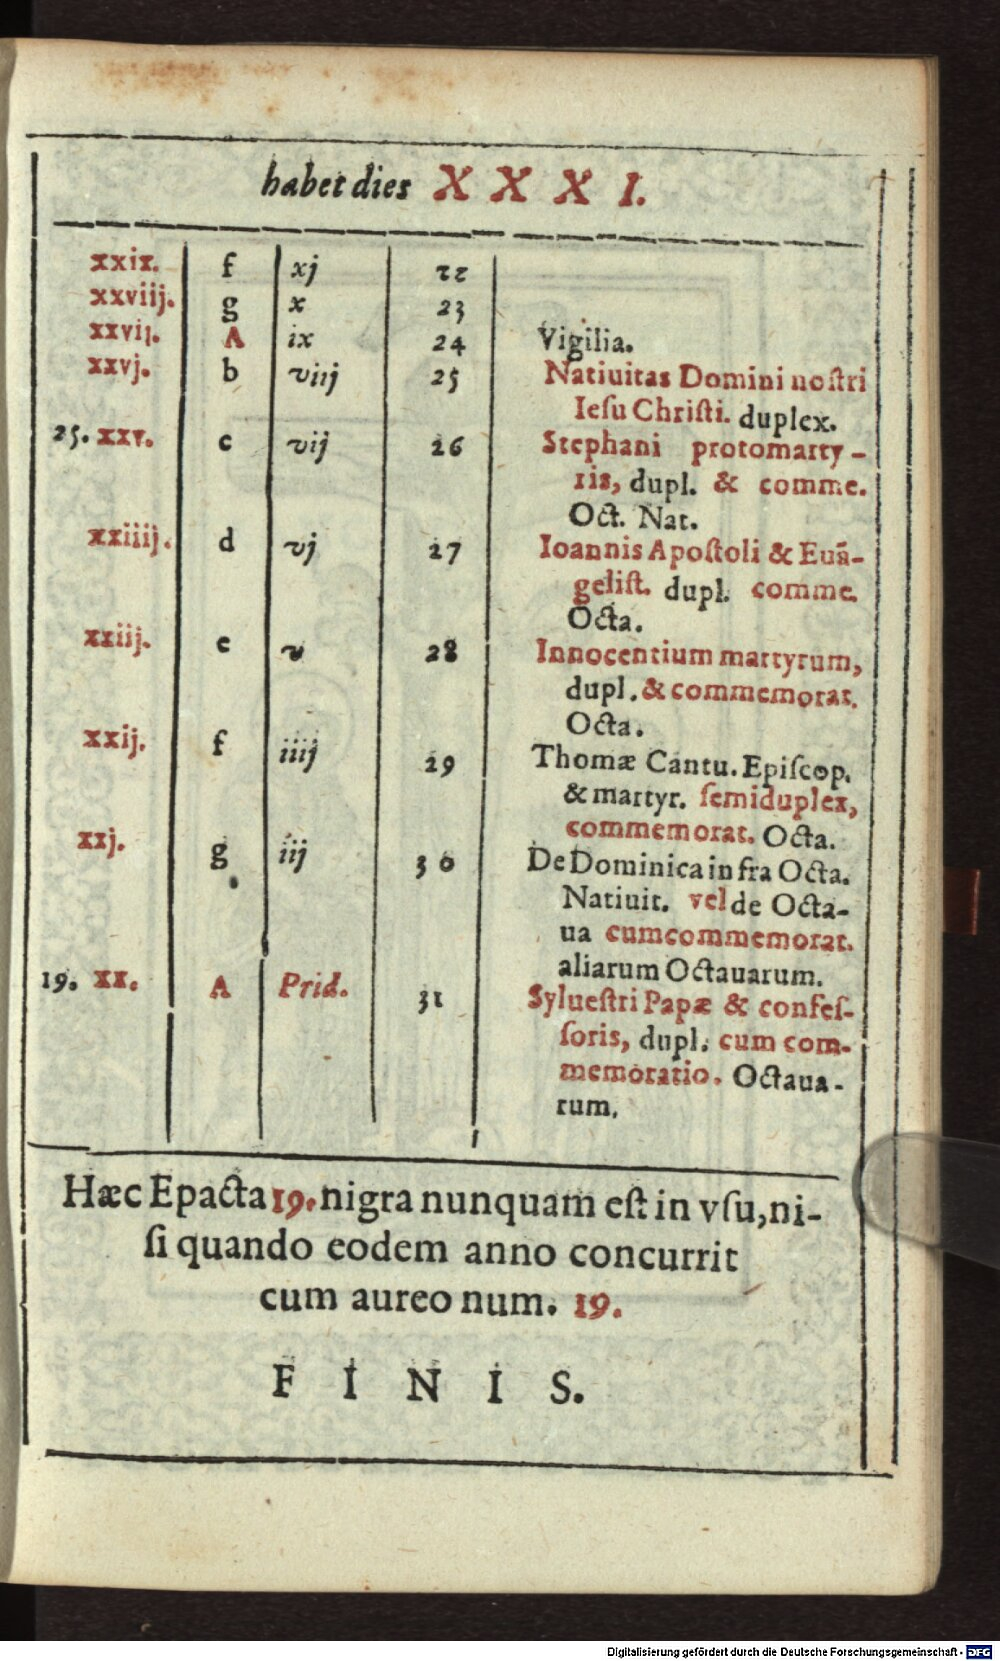 habet dies X X X I.
xxix. f xj 22
xxviij. g x 23
xxvij. A ix 24 Vigilia.
xxvj. b viij 25 Natiuitas Domini noſtri
Ieſu Chriſti. duplex.
25. xxv. c vij 26 Stephani protomarty-
ris, dupl. & comme.
Oct. Nat.
xxiiij. d vj 27 Ioannis Apoſtoli & Euã-
geliſt. dupl. comme.
Octa.
xxiij. e v 28 Innocentium martyrum,
dupl. & commemorat.
Octa.
xxij. f iiij 29 Thomæ Cantu. Epiſcop.
& martyr. ſemiduplex,
commemorat. Octa.
xxj. g iij 30 De Dominica infra Octa.
Natiuit. vel de Octa-
ua cum commemorat.
aliarum Octauarum.
19. xx. A Prid. 31 Sylueſtri Papæ & confeſ-
ſoris, dupl. cum com-
memoratio. Octaua-
rum.
Hæc Epacta 19. nigra nunquam eſt in vſu, ni-
ſi quando eodem anno concurrit
cum aureo num. 19.
F I N I S.
Digitalisierung gefördert durch die Deutsche Forschungsgemeinschaft - DFG